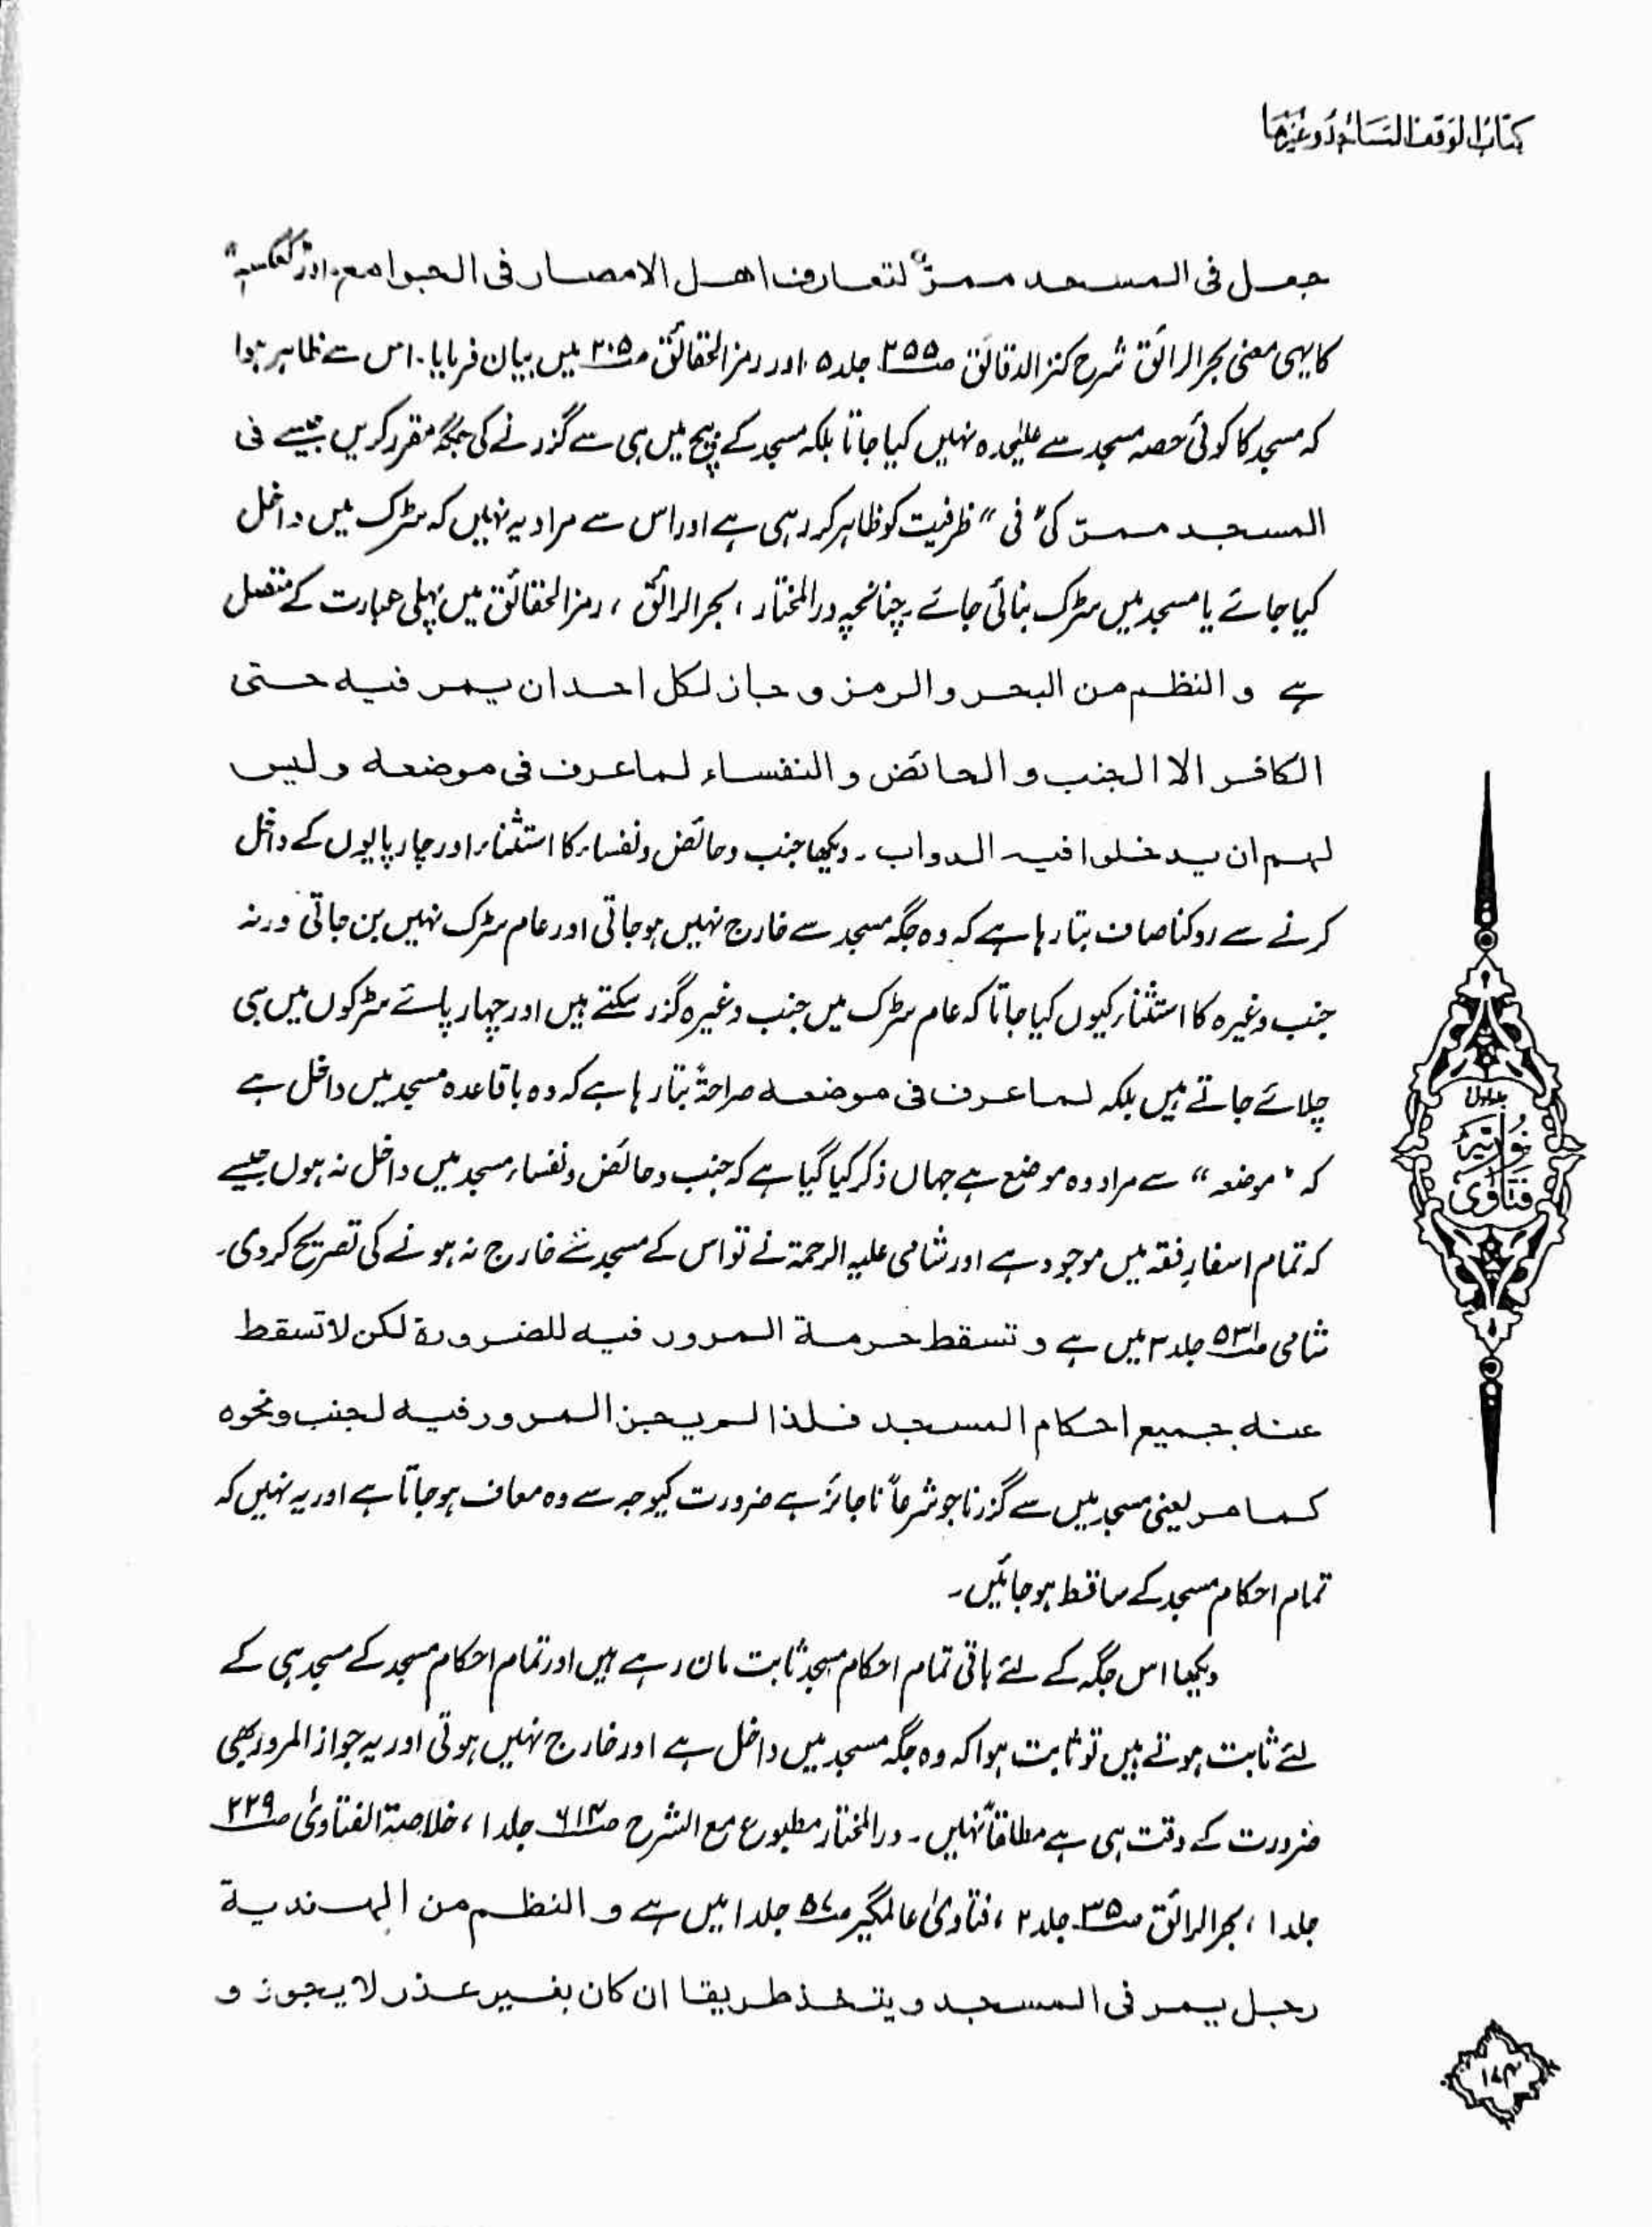 کتاب الوقف المساجد وغیرھا
جعل فی المسجد ممرّ لتعارف اھل الامصار فی الجوامع، اور "کعکسہ"
کا یہی معنی بحر الرائق شرح کنز الدقائق صـ۲۵۵ جلد ۵ اور رمز الحقائق صـ۲۰۵ میں بیان فرمایا۔ اس سے ظاہر ہوا
کہ مسجد کا کوئی حصہ مسجد سے علیٰحدہ نہیں کیا جاتا بلکہ مسجد کے بیچ میں ہی سے گزرنے کی جگہ مقرر کریں جیسے فی
المسجد ممرّ کی "فی" ظرفیت کو ظاہر کر رہی ہے اور اس سے مراد یہ نہیں کہ سڑک میں داخل
کیا جائے یا مسجد میں سڑک بنائی جائے۔ چنانچہ در المختار، بحر الرائق، رمز الحقائق میں پہلی عبارت کے متصل
ہے و النظم من البحر و الرمز و جاز لکل احد ان یمر فیہ حتی
الکافر الا الجنب و الحائض و النفساء لما عرف فی موضعہ و لیس
لہم ان یدخلوا فیہ الدواب۔ دیکھا جنب و حائض و نفساء کا استثناء اور چارپایوں کے داخل
کرنے سے روکنا صاف بتا رہا ہے کہ وہ جگہ مسجد سے خارج نہیں ہو جاتی اور عام سڑک نہیں بن جاتی ورنہ
جنب وغیرہ کا استثناء کیوں کیا جاتا کہ عام سڑک میں جنب وغیرہ گزر سکتے ہیں اور چہار پائے سڑکوں میں ہی
چلائے جاتے ہیں بلکہ لما عرف فی موضعہ صراحۃً بتا رہا ہے کہ وہ باقاعدہ مسجد میں داخل ہے
کہ "موضعہ" سے مراد وہ موضع ہے جہاں ذکر کیا گیا ہے کہ جنب و حائض و نفساء مسجد میں داخل نہ ہوں جیسے
کہ تمام اسفارِ فقہ میں موجود ہے اور شامی علیہ الرحمۃ نے تو اس کے مسجد سے خارج نہ ہونے کی تصریح کر دی۔
شامی صـ۵۳۱ جلد ۳ میں ہے و تسقط حرمۃ المرور فیہ للضرورۃ لکن لا تسقط
عنہ جمیع احکام المسجد فلذا لم یجز المرور فیہ لجنب ونحوہ
کما مر یعنی مسجد میں سے گزرنا جو شرعاً ناجائز ہے ضرورت کیوجہ سے وہ معاف ہو جاتا ہے اور یہ نہیں کہ
تمام احکام مسجد کے ساقط ہو جائیں۔
دیکھا اس جگہ کے لئے باقی تمام احکام مسجد ثابت مان رہے ہیں اور تمام احکام مسجد کے مسجد ہی کے
لئے ثابت ہوتے ہیں تو ثابت ہوا کہ وہ جگہ مسجد میں داخل ہے اور خارج نہیں ہوتی اور یہ جواز المرور بھی
ضرورت کے وقت ہی ہے مطلقاً نہیں۔ در المختار مطبوع مع الشرح صـ۶۱۴ جلد ۱، خلاصۃ الفتاویٰ صـ۲۲۹
جلد ۱، بحر الرائق صـ۳۵ جلد ۲، فتاویٰ عالمگیر صـ۵۷ جلد ۱ میں ہے و النظم من الہندیۃ
رجل یمر فی المسجد و یتخذ طریقا ان کان بغیر عذر لا یجوز و
جلد اول
نُوریّہ
فتاویٰ
۱۷۴